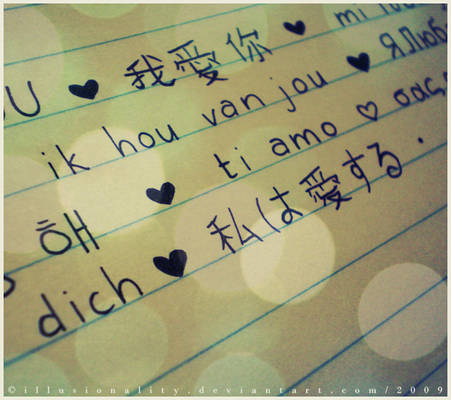 U ♥ 我愛你 ♥ mi
ik hou van jou ♥ Я люб
해 ♥ ti amo ♡ σας
dich ♥ 私は愛する.
©illusionality.deviantart.com/2009